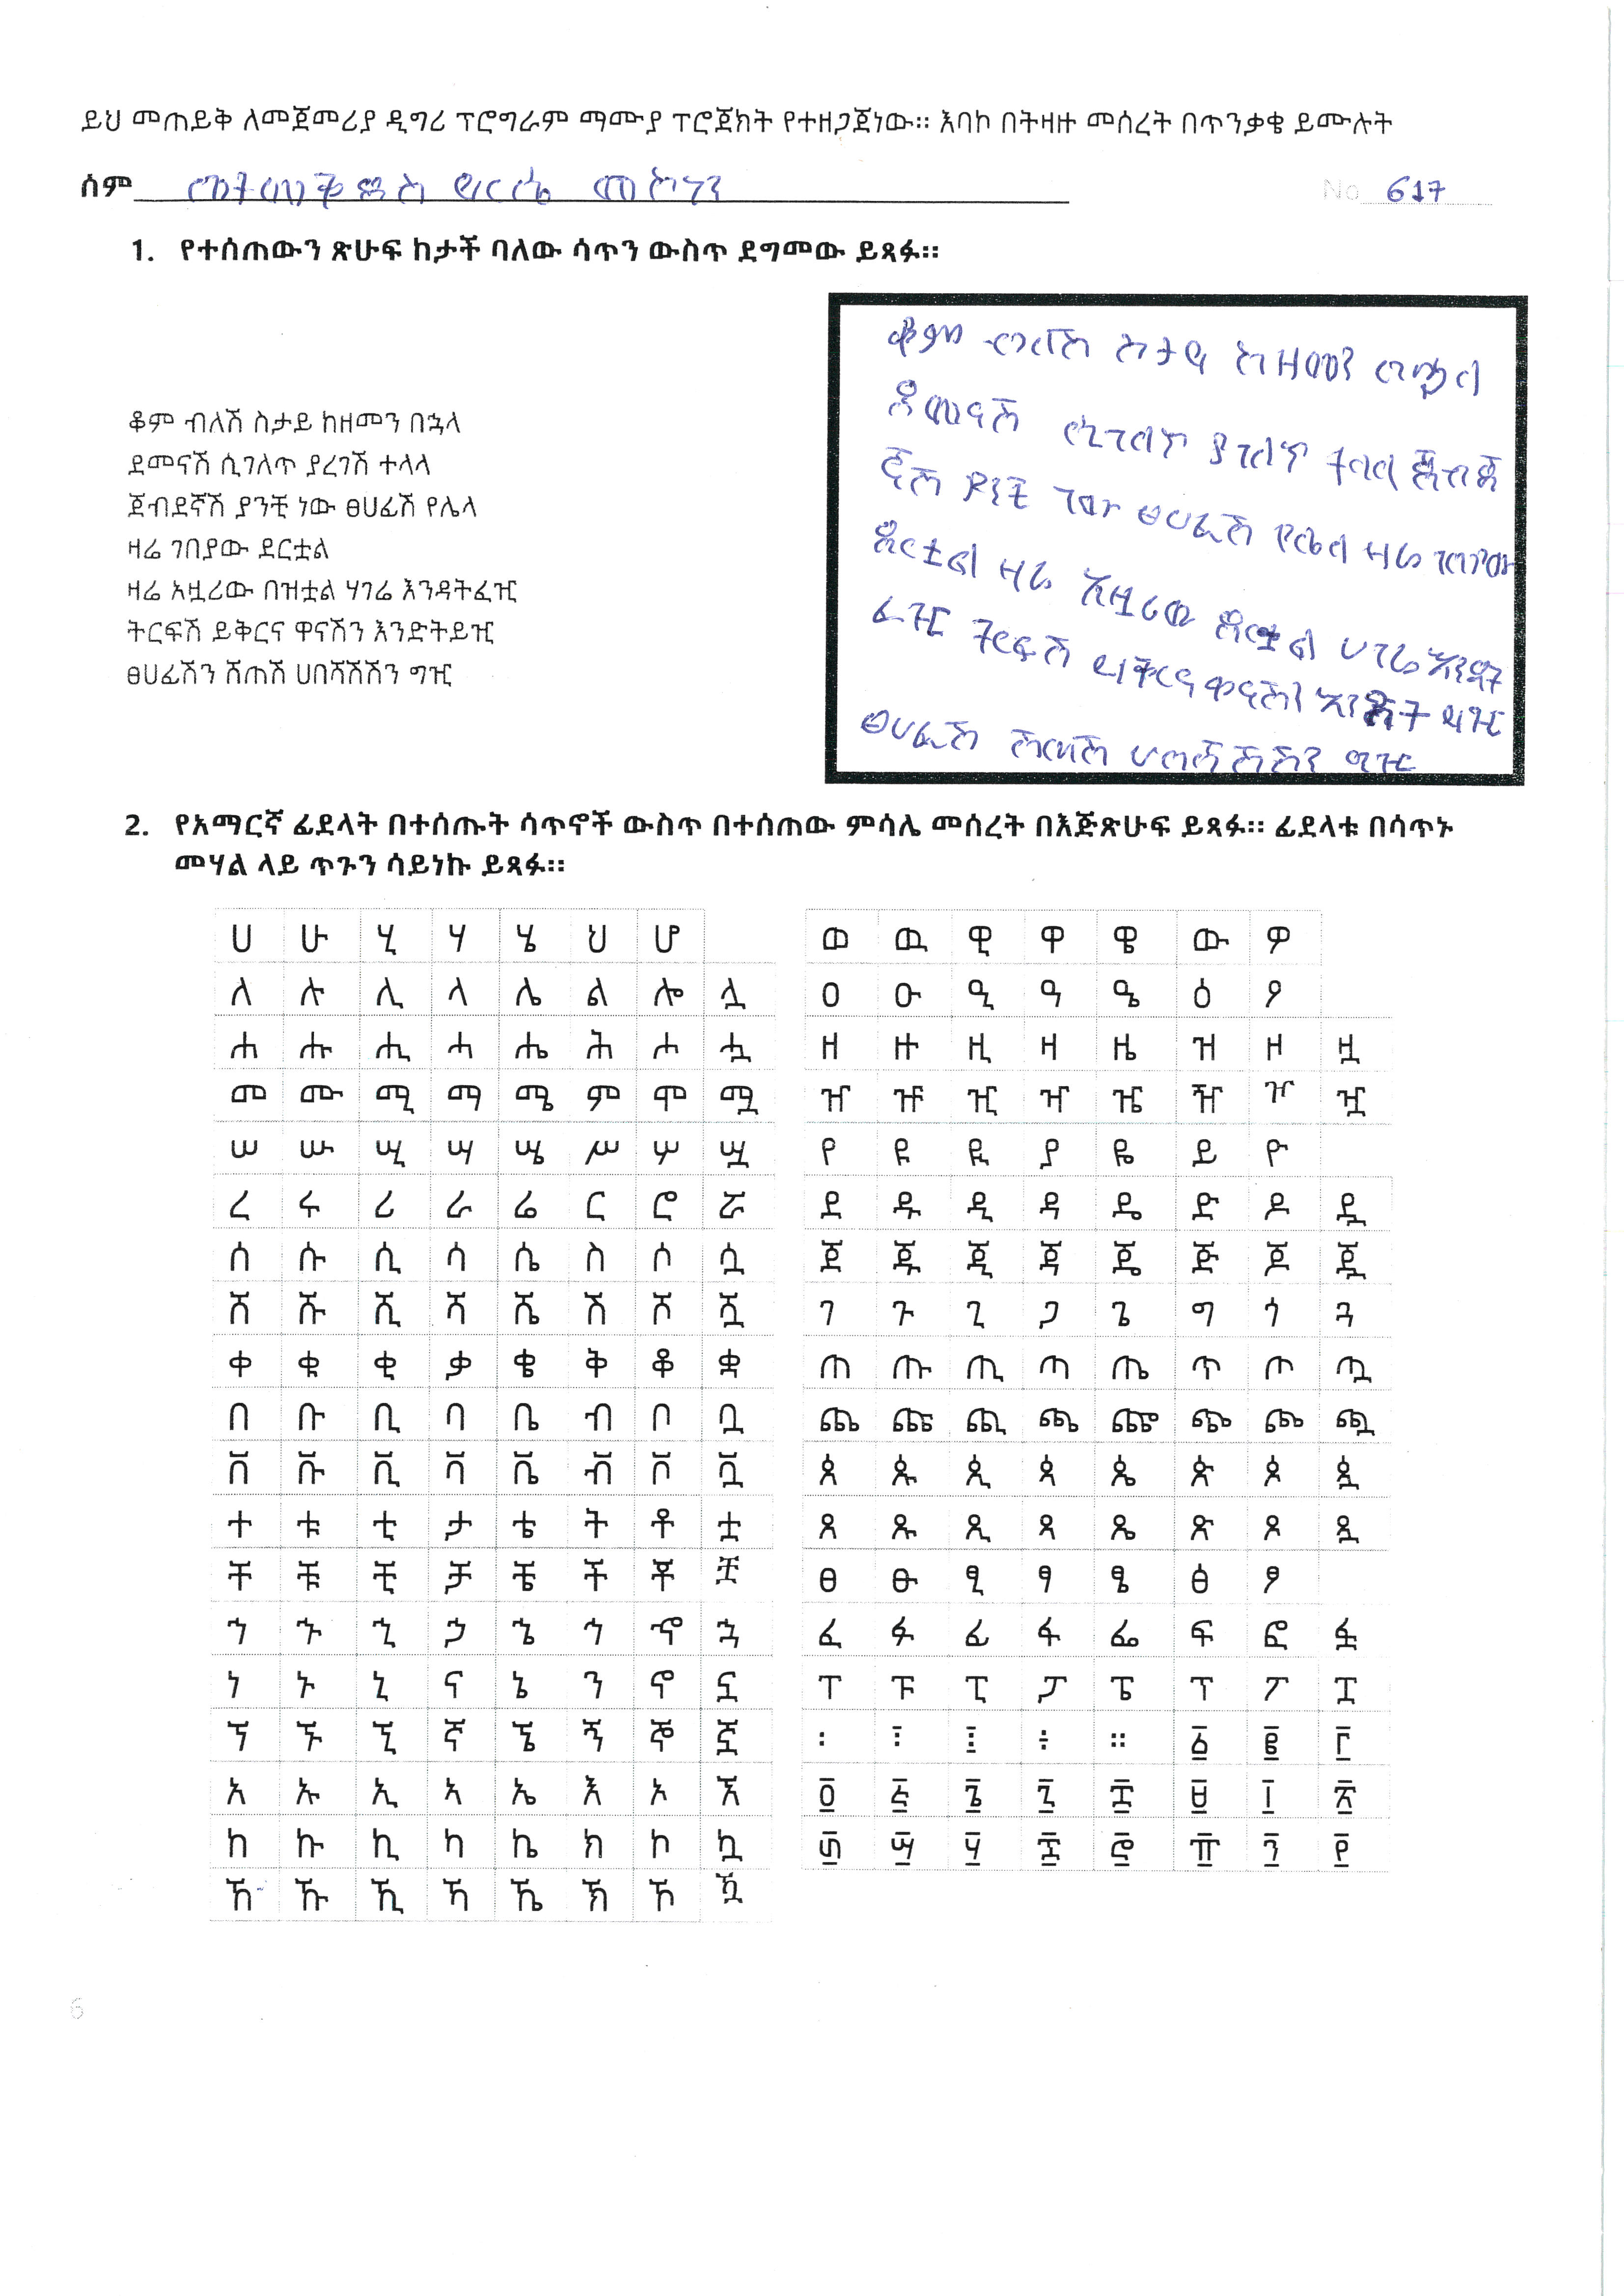 ይህ መጠይቅ ለመጀመሪያ ዲግሪ ፕሮግራም ማሙያ ፕሮጀክት የተዘጋጀነው። እባኮ በትዛዙ መሰረት በጥንቃቄ ይሙሉት
ስም
No 617
1. የተሰጠውን ጽሁፍ ከታች ባለው ሳጥን ውስጥ ደግመው ይጻፉ።
ቆም ብለሽ ስታይ ከዘመን በኋላ
ደመናሽ ሲገለጥ ያረገሽ ተላላ
ጀብደኛሽ ያንቺ ነው ፀሀፊሽ የሌላ
ዛሬ ገበያው ደርቷል
ዛሬ አዟሪው በዝቷል ሃገሬ እንዳትፈዢ
ትርፍሽ ይቅርና ዋናሽን እንድትይዢ
ፀሀፊሽን ሽጠሽ ሀበሻሽሽን ግዢ
ቆም ብለሽ ስታይ ከዘመን በኋላ
ደመናሽ ሲገለጥ ያገለጥ ተላላ ጀብደ
ኛሽ ያንቺ ነው ፀሀፊሽ የሌላ ዛሬ ገበያው
ደርቷል ዛሬ አዟሪው ደርቷል ሀገሬ እንዳት
ፈዢ ትርፍሽ ይቅርና ዋናሽን እንድት ይዢ
ፀሀፊሽ ሽጠሽ ሀበሻሽሽን ግዢ
2. የአማርኛ ፊደላት በተሰጡት ሳጥኖች ውስጥ በተሰጠው ምሳሌ መሰረት በእጅጽሁፍ ይጻፉ። ፊደላቱ በሳጥኑ
መሃል ላይ ጥጉን ሳይነኩ ይጻፉ።
ሀ ሁ ሂ ሃ ሄ ህ ሆ
ለ ሉ ሊ ላ ሌ ል ሎ ሏ
ሐ ሑ ሒ ሓ ሔ ሕ ሖ ሗ
መ ሙ ሚ ማ ሜ ም ሞ ሟ
ሠ ሡ ሢ ሣ ሤ ሥ ሦ ሧ
ረ ሩ ሪ ራ ሬ ር ሮ ሯ
ሰ ሱ ሲ ሳ ሴ ስ ሶ ሷ
ሸ ሹ ሺ ሻ ሼ ሽ ሾ ሿ
ቀ ቁ ቂ ቃ ቄ ቅ ቆ ቋ
በ ቡ ቢ ባ ቤ ብ ቦ ቧ
ቨ ቩ ቪ ቫ ቬ ቭ ቮ ቯ
ተ ቱ ቲ ታ ቴ ት ቶ ቷ
ቸ ቹ ቺ ቻ ቼ ች ቾ ቿ
ኀ ኁ ኂ ኃ ኄ ኅ ኆ ኋ
ነ ኑ ኒ ና ኔ ን ኖ ኗ
ኘ ኙ ኚ ኛ ኜ ኝ ኞ ኟ
አ ኡ ኢ ኣ ኤ እ ኦ ኧ
ከ ኩ ኪ ካ ኬ ክ ኮ ኳ
ኸ ኹ ኺ ኻ ኼ ኽ ኾ ዃ
ወ ዉ ዊ ዋ ዌ ው ዎ
ዐ ዑ ዒ ዓ ዔ ዕ ዖ
ዘ ዙ ዚ ዛ ዜ ዝ ዞ ዟ
ዠ ዡ ዢ ዣ ዤ ዥ ዦ ዧ
የ ዩ ዪ ያ ዬ ይ ዮ
ደ ዱ ዲ ዳ ዴ ድ ዶ ዷ
ጀ ጁ ጂ ጃ ጄ ጅ ጆ ጇ
ገ ጉ ጊ ጋ ጌ ግ ጎ ጓ
ጠ ጡ ጢ ጣ ጤ ጥ ጦ ጧ
ጨ ጩ ጪ ጫ ጬ ጭ ጮ ጯ
ጰ ጱ ጲ ጳ ጴ ጵ ጶ ጷ
ጸ ጹ ጺ ጻ ጼ ጽ ጾ ጿ
ፀ ፁ ፂ ፃ ፄ ፅ ፆ
ፈ ፉ ፊ ፋ ፌ ፍ ፎ ፏ
ፐ ፑ ፒ ፓ ፔ ፕ ፖ ፗ
፡ ፧ ፤ ፥ ። ፩ ፪ ፫
፬ ፭ ፮ ፯ ፰ ፱ ፲ ፳
፴ ፵ ፶ ፷ ፸ ፹ ፺ ፻
6